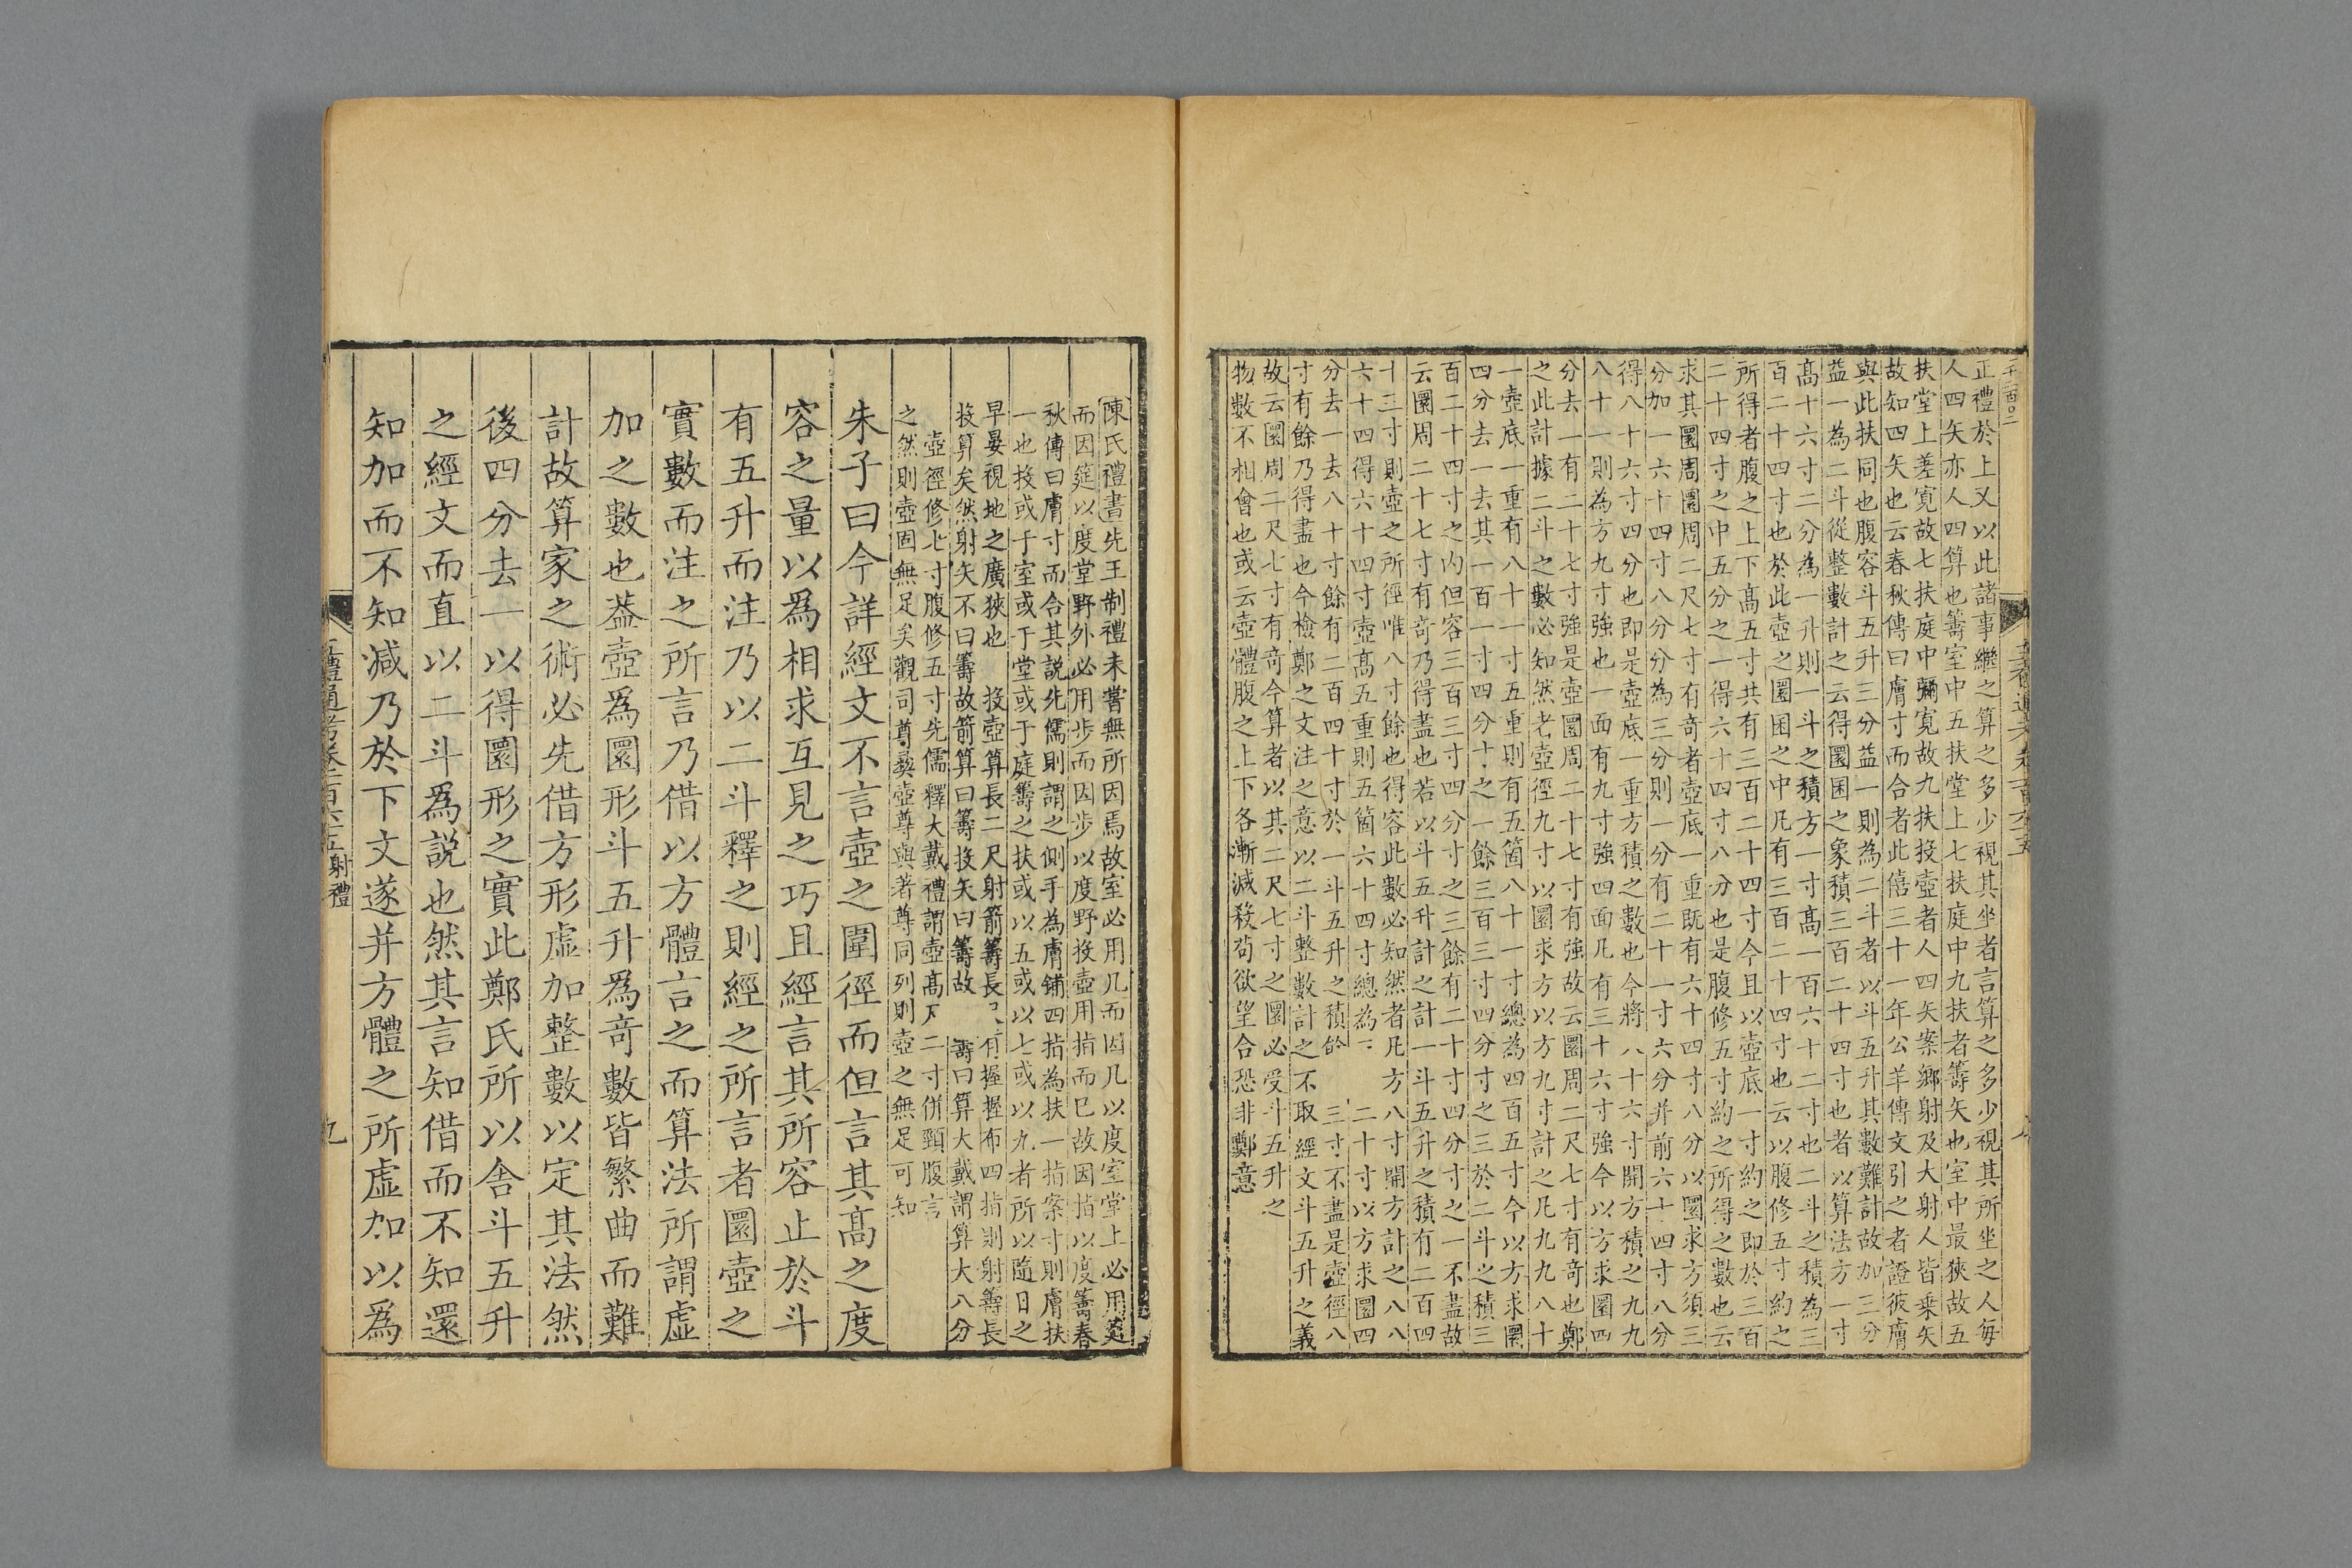 正禮於上又以此諸事繼之算之多少視其坐者言算之多少視其所坐之人每
人四矢亦人四算也籌室中五扶堂上七扶庭中九扶者籌矢也室中最狹故五
扶堂上差寛故七扶庭中彌寛故九扶投壺者人四矢案鄉射及大射人皆乗矢
故知四矢也云春秋傳曰膚寸而合者此僖三十一年公羊傳文引之者證彼膚
與此扶同也腹容斗五升三分益一則為二斗者以斗五升其數難計故加三分
益一為二斗從整數計之云得圜囷之象積三百二十四寸也者以算法方一寸
髙十六寸二分為一升則一斗之積方一寸髙一百六十二寸也二斗之積為三
百二十四寸也於此壺之圜囷之中凡有三百二十四寸也云以腹修五寸約之
所得者腹之上下髙五寸共有三百二十四寸今且以壺底一寸約之即於三百
二十四寸之中五分之一得六十四寸八分也是腹修五寸約之所得之數也云
求其圜周圜周二尺七寸有奇者壺底一重既有六十四寸八分以圜求方須三
分加一六十四寸八分分為三分則一分有二十一寸六分并前六十四寸八分
得八十六寸四分也即是壺底一重方積之數也今將八十六寸開方積之九九
八十一則為方九寸強也一面有九寸強四面凡有三十六寸強今以方求圜四
分去一有二十七寸強是壺圜周二十七寸有強故云圜周二尺七寸有奇也鄭
之此計據二斗之數必知然者壺徑九寸以圜求方以方九寸計之凡九九八十
一壺底一重有八十一寸五重則有五箇八十一寸總為四百五寸今以方求圜
四分去一去其一百一寸四分寸之一餘三百三寸四分寸之三於二斗之積三
百二十四寸之内但容三百三寸四分寸之三餘有二十寸四分寸之一不盡故
云圜周二十七寸有奇乃得盡也若以斗五升計之計一斗五升之積有二百四
十三寸則壺之所徑唯八寸餘也得容此數必知然者凡方八寸開方計之八八
六十四得六十四寸壺髙五重則五箇六十四寸總為三二十寸以方求圜四
分去一去八十寸餘有二百四十寸於一斗五升之積餘三寸不盡是壺徑八
寸有餘乃得盡也今檢鄭之文注之意以二斗整數計之不取經文斗五升之義
故云圜周二尺七寸有奇今算者以其二尺七寸之圜必受斗五升之
物數不相會也或云壺體腹之上下各漸減殺茍欲望合恐非鄭意
陳氏禮書先王制禮未嘗無所因焉故室必用几而因几以度室堂上必用筵
而因筵以度堂野外必用步而因步以度野投壺用指而已故因指以度籌春
秋傳曰膚寸而合其説先儒則謂之側手為膚鋪四指為扶一指案寸則膚扶
一也投或于室或于堂或于庭籌之扶或以五或以七或以九者所以隨日之
早晏視地之廣狹也　投壺算長二尺射箭籌長尺有握握布四指則射籌長
投算矣然射矢不曰籌故箭算曰籌投矢曰籌故籌曰算大戴謂算大八分
壺徑修七寸腹修五寸先儒釋大戴禮謂壺髙尺二寸併頸腹言
之然則壺固無足矣觀司尊彝壺尊與著尊同列則壺之無足可知
朱子曰今詳經文不言壺之圍徑而但言其髙之度
容之量以爲相求互見之巧且經言其所容止於斗
有五升而注乃以二斗釋之則經之所言者圜壺之
實數而注之所言乃借以方體言之而算法所謂虛
加之數也葢壺爲圜形斗五升爲竒數皆繁曲而難
計故算家之術必先借方形虛加整數以定其法然
後四分去一以得圜形之實此鄭氏所以舍斗五升
之經文而直以二斗爲説也然其言知借而不知還
知加而不知減乃於下文遂并方體之所虛加以爲
五禮通考卷一百六十五射禮
九